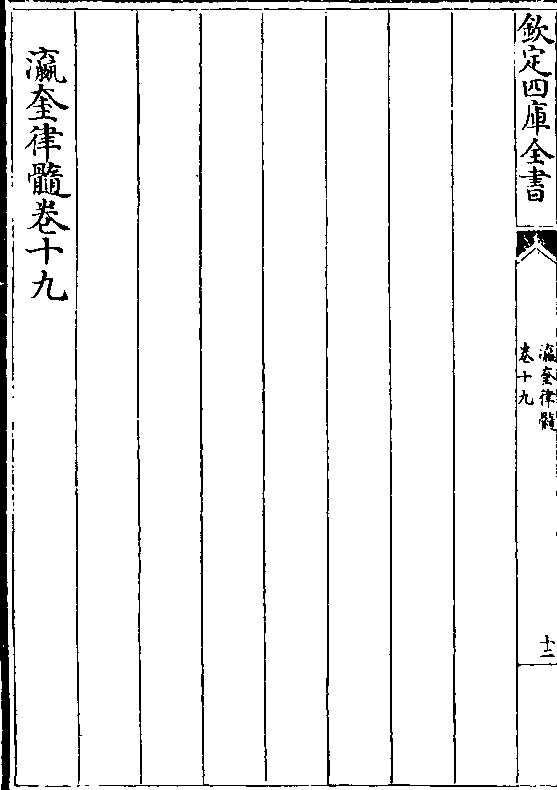 欽定四庫全書
瀛奎律髓
卷十九
十二
瀛奎律髓卷十九